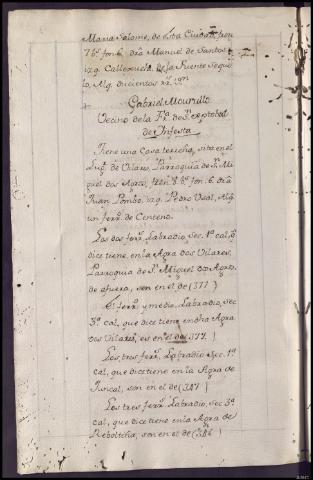 Maria Salome, de esta Ciudad, tien
7 bs. fon. 6. dra Manuel de Santos
izq. Callexuela de la Fuente seque
lo, Alq. docientos rs. vn
Gabriel Mourillo
Vecino de la Fa. de Sn. Xptobal
de Ynfesta
Tiene una Casa terreña, sita en el
Lugr. de Vilares, Parroquia de Sn. Mi
guel dos Agros, fren. 8. bs. fon. 6. dra
Juan Pombo, izq. Pedro Vsal, Alq.
un ferr. de Centeno.
Los dos ferr. Labradio, Sec. 1ª cal. q.
dice tiene, en la Agra dos Vilares,
Parroquia de Sn. Miguel dos Agros,
de afuera, son en el de (377)
El ferr. y medio, Labradio, Sec.
3ª cal, que dice tiene en dha Agra
dos Vilares, es en el de (377.)
Los, tres ferr. Labradio, Sec. 1ª
cal, que dice tiene en la Agra de
Juncal, son en el de (387)
Los tres ferr. Labradio, Sec. 3ª
cal, que dice tiene en la Agra de
Reboltiña, son en el de (386)